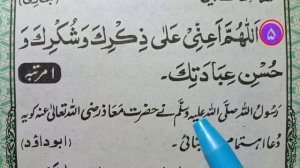 ۵ اَللّٰهُمَّ اَعِنِّیْ عَلٰی ذِكْرِكَ وَ شُكْرِكَ وَ
حُسْنِ عِبَادَتِكَ۔ ۱ مرتبہ
رسول اللہ صلی اللہ علیہ وسلم نے حضرت معاذ رضی اللہ تعالیٰ عنہ کو یہ
دُعا اہتمام ئی۔ (ابوداؤد)